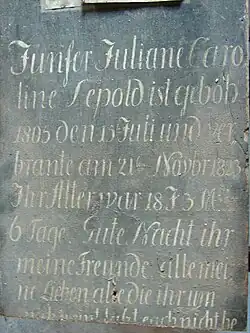 Junfer Juliane Caro
line Lepold ist geboh
1805 den 15 Juli und ver
brante am 21t Novbr 1823
Ihr Alter war 18 J 3 M
6 Tage. Gute Nacht ihr
meine Freunde alle mei
ne Lieben alle die ihr um
mich weint laßt euch nicht be